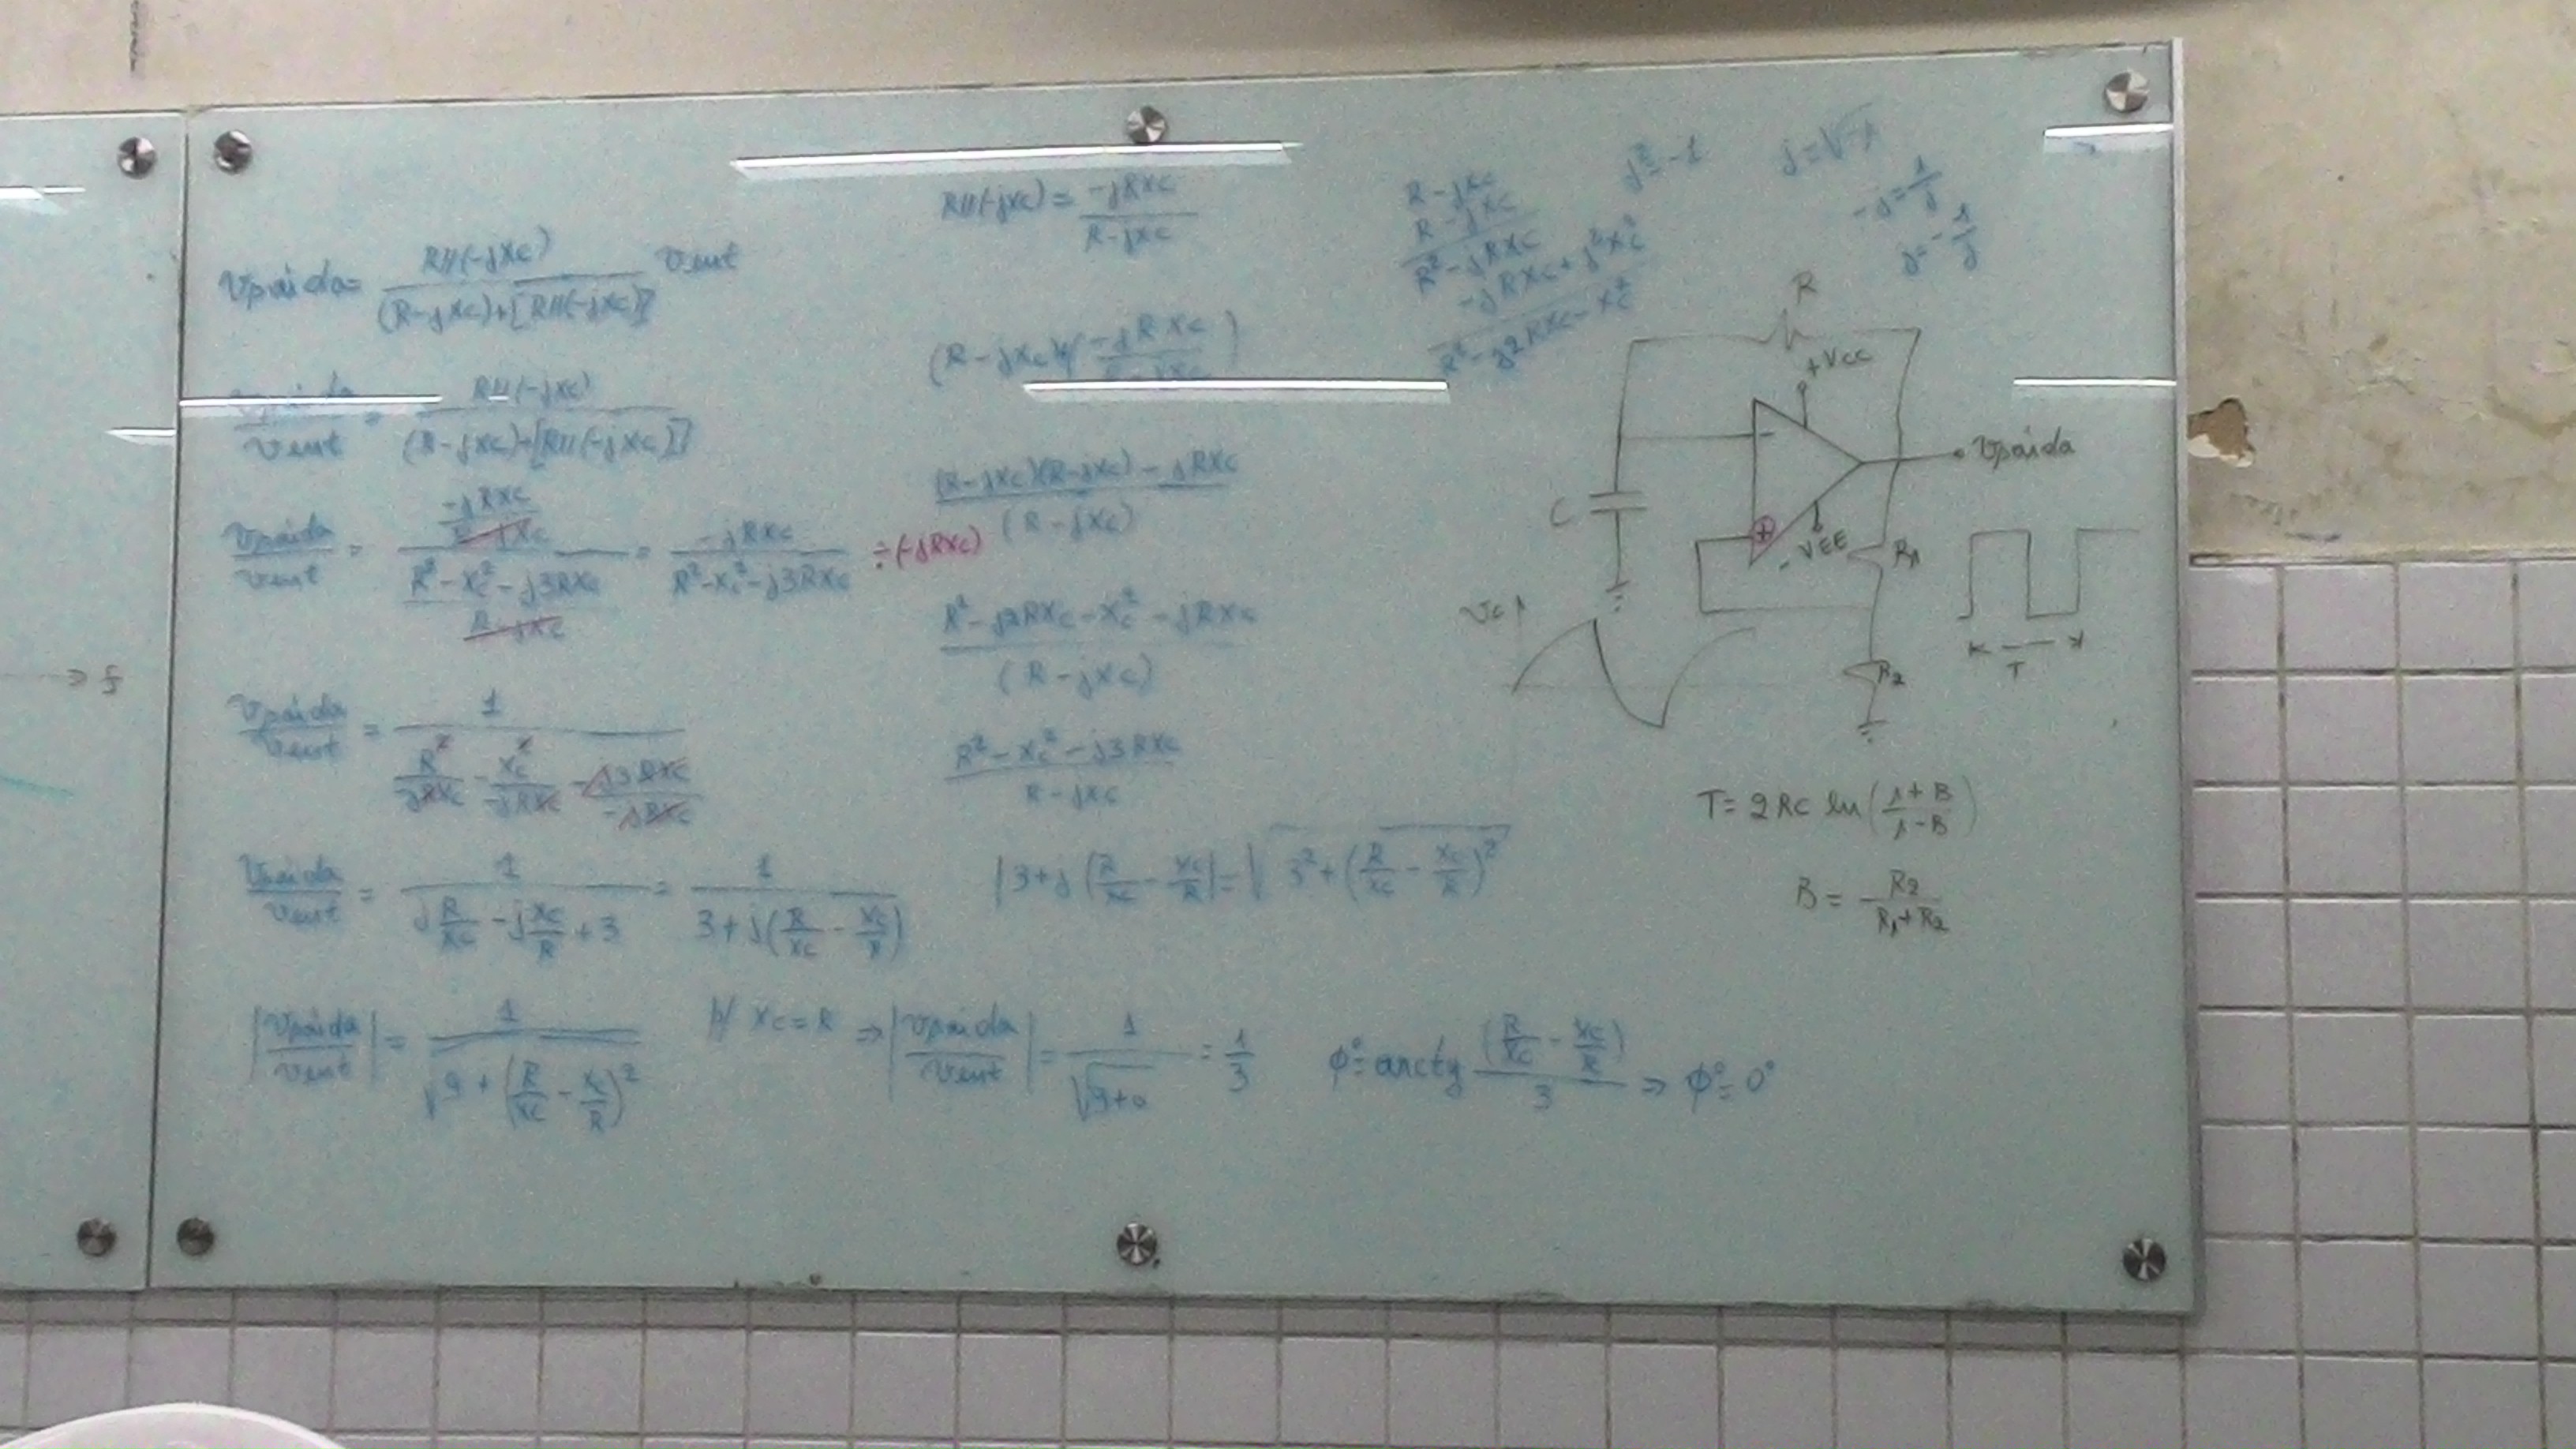 → f
Vsaída = R//(-jXc) / (R-jXc)+[R//(-jXc)] Vent
Vsaída/Vent = R//(-jXc) / (R-jXc)+[R//(-jXc)]
Vsaída/Vent = (-jRXc / R-jXc) / (R²-Xc²-j3RXc / R-jXc) = -jRXc / R²-Xc²-j3RXc ÷(-jRXc)
Vsaída/Vent = 1 / (R²/-jRXc - Xc²/-jRXc - j3RXc/-jRXc)
Vsaída/Vent = 1 / (j R/Xc - j Xc/R + 3) = 1 / (3+j(R/Xc - Xc/R))
|Vsaída/Vent| = 1 / √(9+(R/Xc - Xc/R)²) p/ Xc=R ⇒ |Vsaída/Vent| = 1/√(9+0) = 1/3
R//(-jXc) = -jRXc / R-jXc
(R-jXc)+(-jRXc / R-jXc)
(R-jXc)(R-jXc)-jRXc / (R-jXc)
R²-j2RXc-Xc²-jRXc / (R-jXc)
R²-Xc²-j3RXc / R-jXc
|3+j(R/Xc - Xc/R)| = √(3²+(R/Xc - Xc/R)²)
ϕ° = arctg (R/Xc - Xc/R)/3 ⇒ ϕ° = 0°
R-jXc
R-jXc
R²-jRXc
-jRXc+j²Xc²
R²-j2RXc-Xc²
j²=-1
j=√-1
-j=1/j
j=-1/j
R
+Vcc
-
+
-VEE
C
Vsaída
R1
R2
Vc
T
T= 2RC ln(1+B / 1-B)
B = R2 / R1+R2